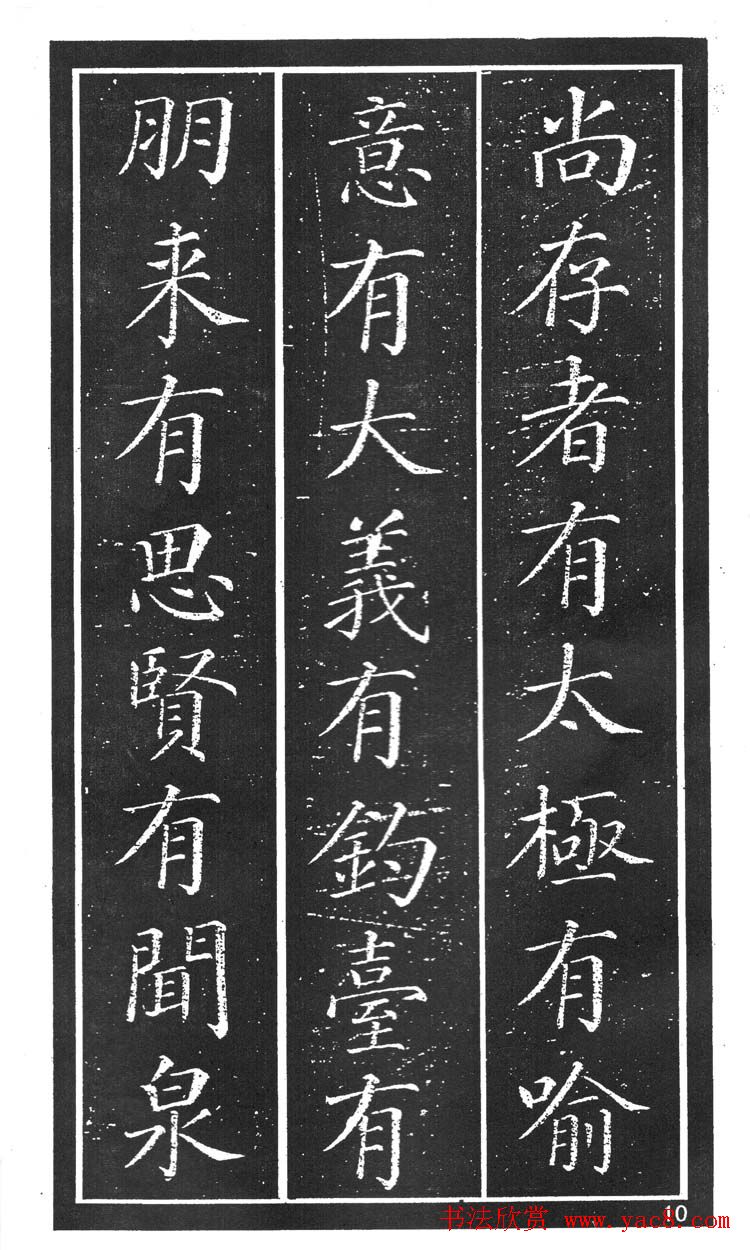 尚存者有太極有喻
意有大義有鈞臺有
朋来有思賢有聞泉
10
书法欣赏 www.yac8.com